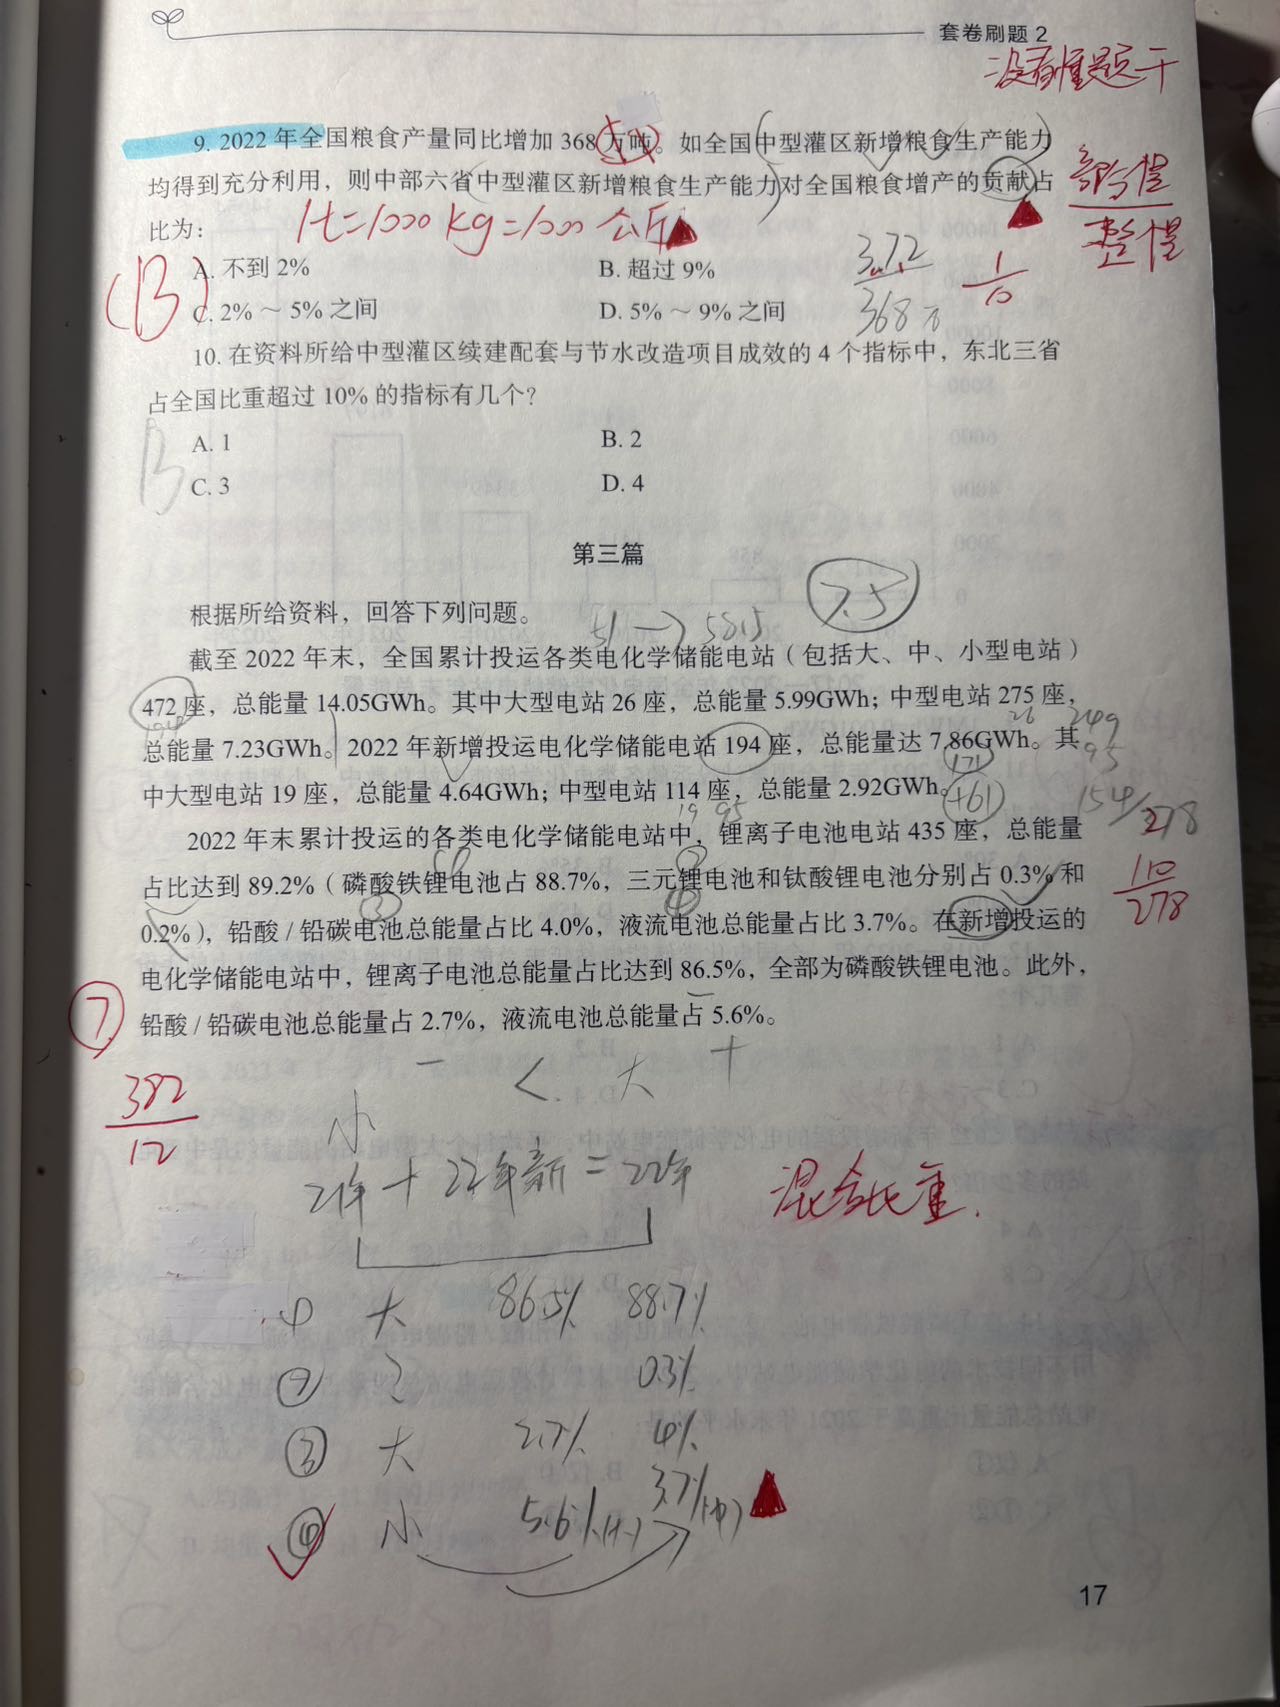 套卷刷题 2
没看懂题干
9. 2022 年全国粮食产量同比增加 368 万吨。如全国中型灌区新增粮食生产能力
均得到充分利用，则中部六省中型灌区新增粮食生产能力对全国粮食增产的贡献占
比为：
1t=1000 kg=1000 公斤
部分增
整增
A. 不到 2%
B. 超过 9%
C. 2% ～ 5% 之间
D. 5% ～ 9% 之间
(B)
3.72
368万
1
10
10. 在资料所给中型灌区续建配套与节水改造项目成效的 4 个指标中，东北三省
占全国比重超过 10% 的指标有几个？
A. 1
B. 2
C. 3
D. 4
B
第三篇
7.5
根据所给资料，回答下列问题。
51 → 58.5
截至 2022 年末，全国累计投运各类电化学储能电站（包括大、中、小型电站）
472 座，总能量 14.05GWh。其中大型电站 26 座，总能量 5.99GWh；中型电站 275 座，
194
26
249
总能量 7.23GWh。2022 年新增投运电化学储能电站 194 座，总能量达 7.86GWh。其
171
95
中大型电站 19 座，总能量 4.64GWh；中型电站 114 座，总能量 2.92GWh。
+61
19 95
154/278
2022 年末累计投运的各类电化学储能电站中，锂离子电池电站 435 座，总能量
占比达到 89.2%（磷酸铁锂电池占 88.7%，三元锂电池和钛酸锂电池分别占 0.3% 和
110
278
0.2%），铅酸 / 铅碳电池总能量占比 4.0%，液流电池总能量占比 3.7%。在新增投运的
③ ④
电化学储能电站中，锂离子电池总能量占比达到 86.5%，全部为磷酸铁锂电池。此外，
铅酸 / 铅碳电池总能量占 2.7%，液流电池总能量占 5.6%。
⑦
382
12
小 − < 大 +
21年 + 22年新 = 22年
混合比重.
① 大 86.5% 88.7%
② ? 0.3%
③ 大 2.7% 4%
④ 小 5.6%(大) 3.7%(中)
17